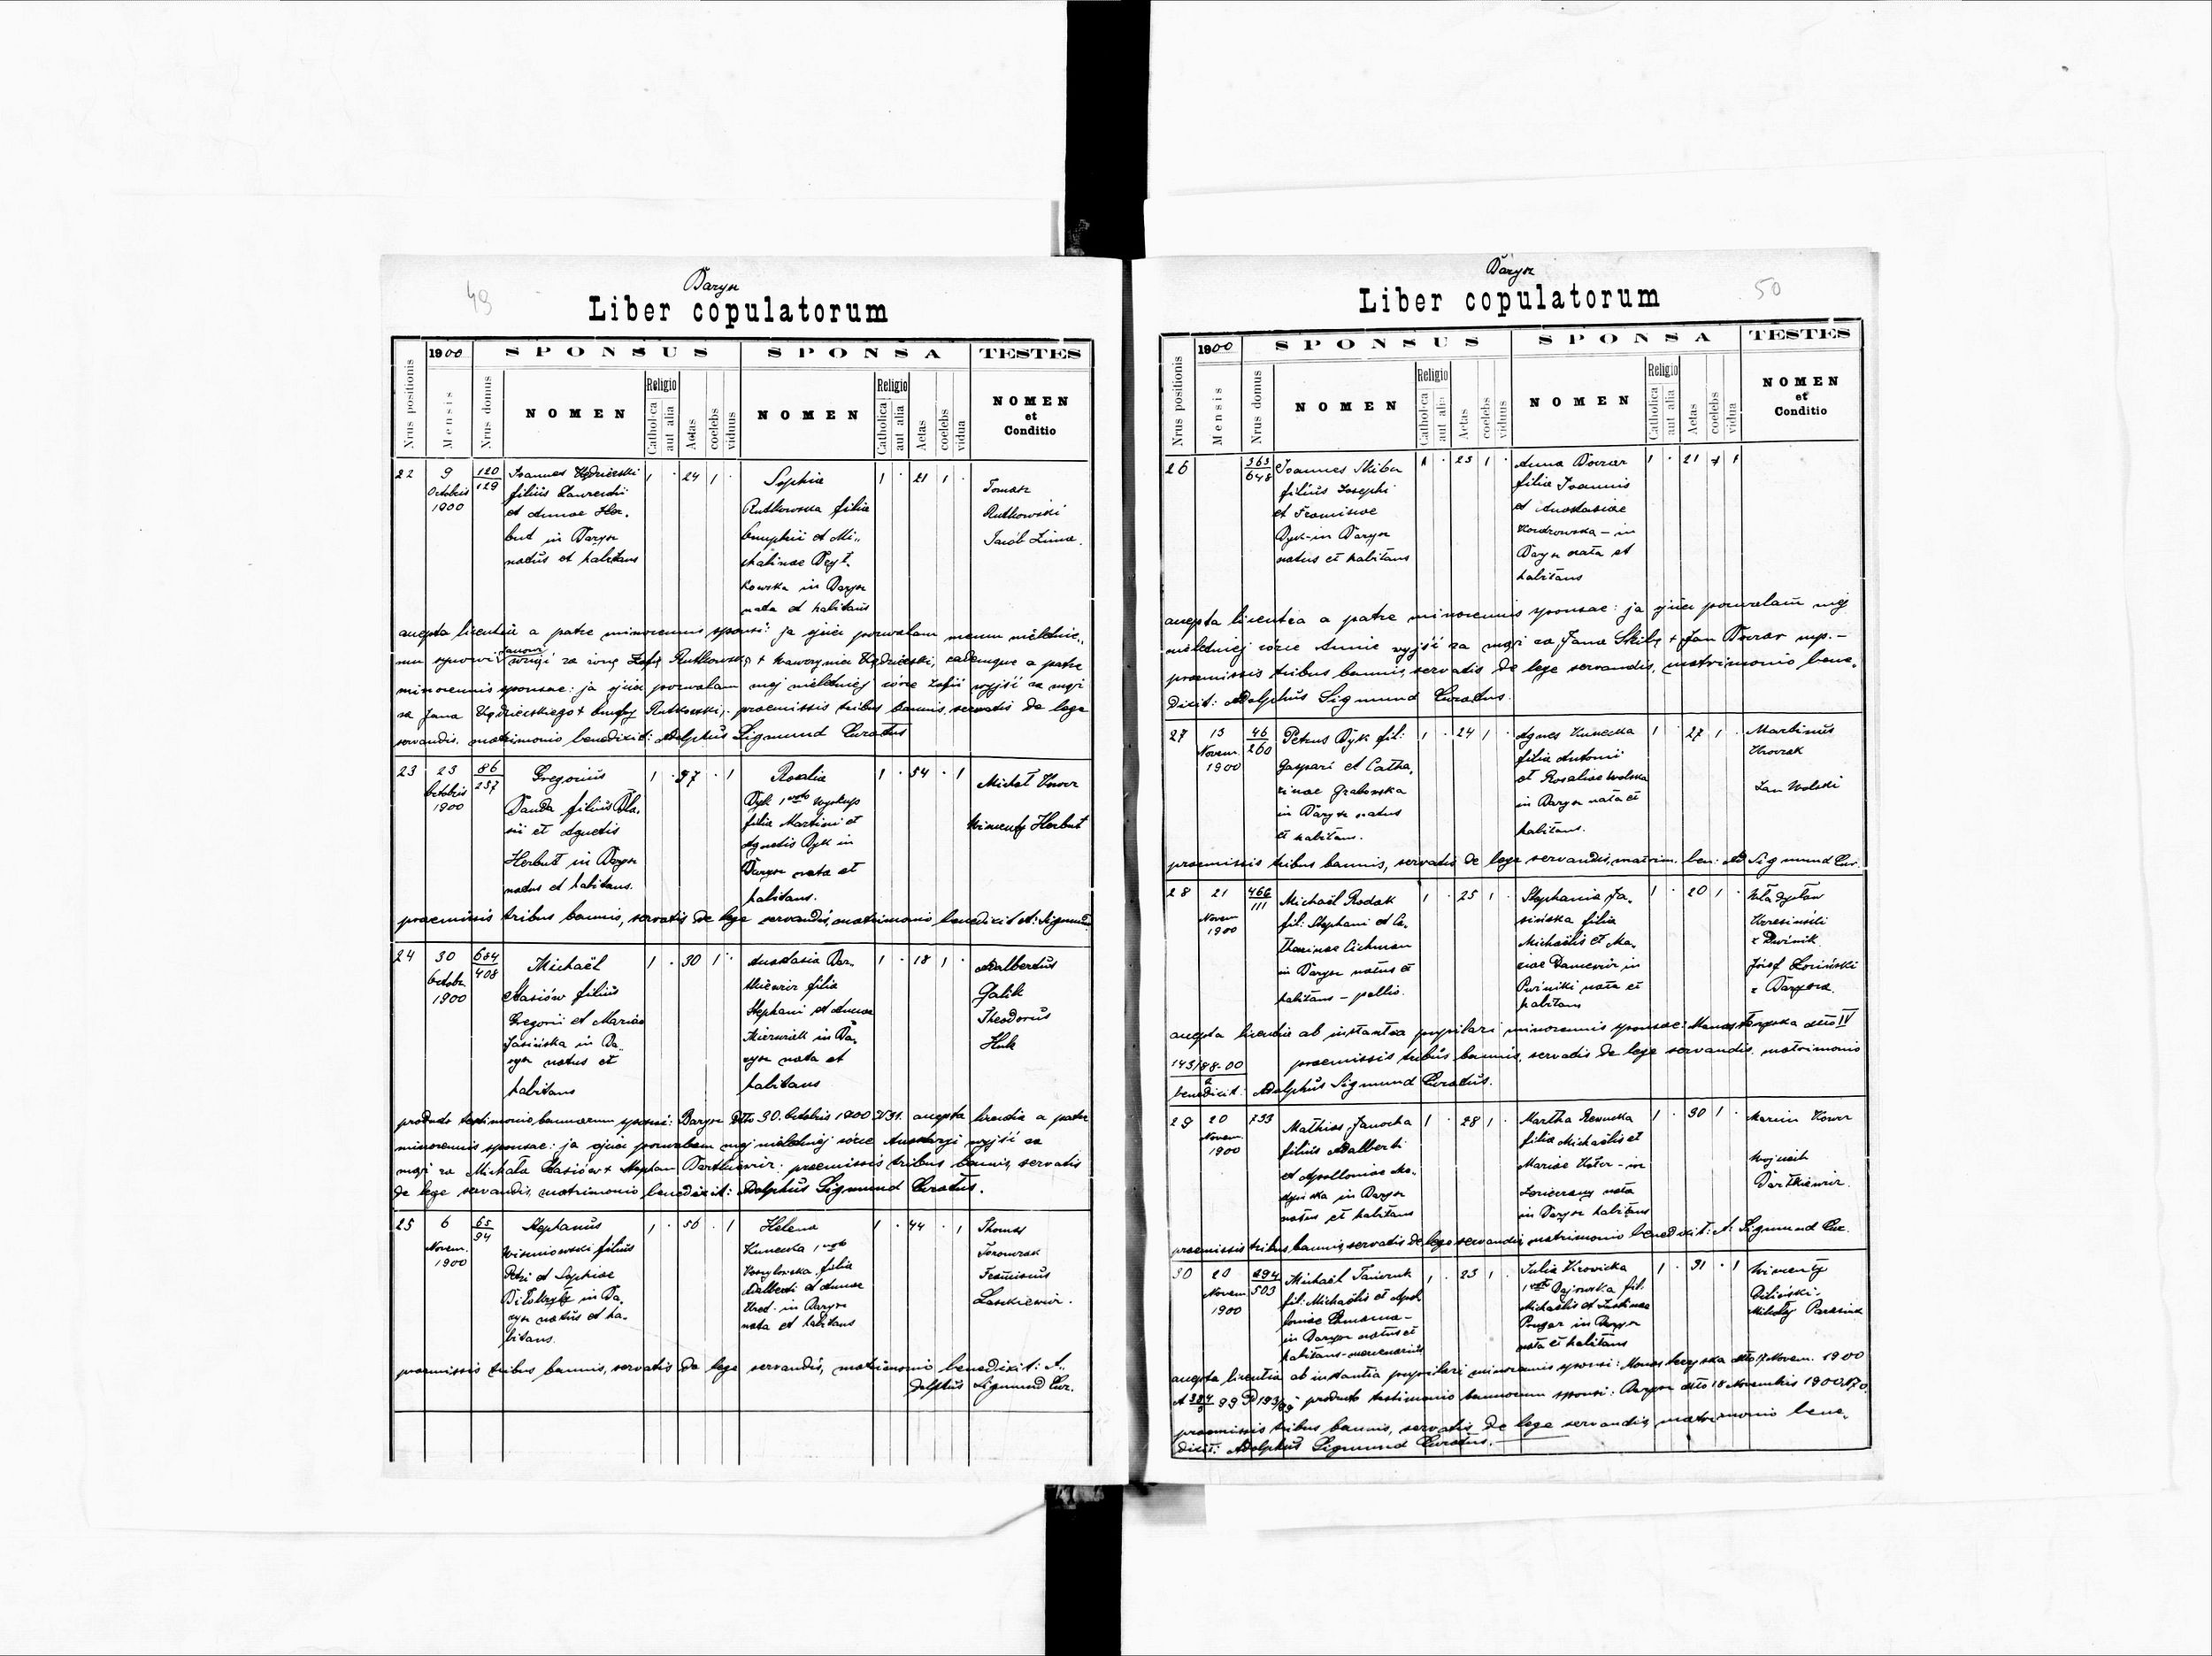 49
Barysz
Liber copulatorum
Nrus positionis
1900
Mensis
SPONSUS
SPONSA
TESTES
Nrus domus
NOMEN
Religio
Catholica
aut alia
Aetas
coelebs
viduus
NOMEN
Religio
Catholica
aut alia
Aetas
coelebs
vidua
NOMEN
et
Conditio
22
9
Octobris
1900
120
129
Joannes
filius Laurentii
et Annae Her-
but in Barysz
natus et habitans
1 · 24 1 ·
Sophia
Rutkowska filia
Onuphrii et Mi-
chalinae
in Barysz
nata et habitans
1 · 21 1 ·
Tomasz
Rutkowski
Jacób Zima.
accepta licentia a patre minorennis sponsi: ja ojciec pozwalam memu nieletnie-
mu synowi Janowi wziąć za żonę Zofię Rutkowską + Wawrzyniec eademque a patre
minorennis sponsae: ja ojciec pozwalam mej nieletniej córce Zofii wyjść za mąż
za Jana + Rutkowski, praemissis tribus bannis, servatis de lege
servandis. matrimonio benedixit: Adolphus Sigmund Curatus
23
23
Octobris
1900
86
237
Gregorius
Banda filius Bla-
sii et Agnetis
Herbut in Barysz
natus et habitans.
1 · 37 · 1
Rosalia
Dyk 1voto Wyskup
filia Martini et
Agnetis Dyk in
Barysz nata et
habitans.
1 · 54 · 1
Michał
Wincenty Herbut
praemissis tribus bannis, servatis de lege servandis, matrimonio benedixit A: Sigmund
24
30
Octobr.
1900
684
408
Michaël
Stasiów filius
Gregorii et Mariae
Jasińska in Ba-
rysz natus et
habitans
1 · 30 1 ·
Anastasia Bar-
tkiewicz filia
Stephani et Annae
in Ba-
rysz nata et
habitans
1 · 18 1 ·
Adalbertus
Galik
Theodorus
Huk
producto testimonio bannorum sponsi: Barysz dtto 30. Octobris 1900 accepta licentia a patre
minorennis sponsae: ja ojciec pozwalam mej nieletniej córce Anastazyi wyjść za
mąż za Michała Stasiów + Stephan Bartkiewicz: praemissis tribus bannis, servatis
de lege servandis, matrimonio benedixit: Adolphus Sigmund Curatus.
25
6
Novem.
1900
65
94
Stephanus
Wiśniowski filius
Petri et Sophiae
in Ba-
rysz natus et ha-
bitans.
1 · 56 · 1
Helena
Kunecka 1voto
filia
Adalberti et Annae
in Barysz
nata et habitans
1 · 44 · 1
Thomas
Franciscus
Laszkiewicz.
praemissis tribus bannis, servatis de lege servandis, matrimonio benedixit: A-
dolphus Sigmund Cur.
Barysz
Liber copulatorum
50
Nrus positionis
1900
Mensis
SPONSUS
SPONSA
TESTES
Nrus domus
NOMEN
Religio
Catholica
aut alia
Aetas
coelebs
viduus
NOMEN
Religio
Catholica
aut alia
Aetas
coelebs
vidua
NOMEN
et
Conditio
26
363
648
Joannes Skiba
filius Josephi
et Franciscae
Dyk in Barysz
natus et habitans
1 · 23 1 ·
Anna
filia Joannis
et Anastasiae
in
Barysz nata et
habitans
1 · 21
accepta licentia a patre minorennis sponsae: ja ojciec pozwalam mej
nieletniej córce Annie wyjść za mąż za Jana Skibę + Jan mp. -
praemissis tribus bannis, servatis de lege servandis, matrimonio bene-
dixit: Adolphus Sigmund Curatus.
27
13
Novem.
1900
46
260
Petrus Dyk fil:
Gaspari et Catha-
rinae Grabowska
in Barysz natus
et habitans.
1 · 24 1 ·
Agnes Kunecka
filia Antonii
et Rosaliae Wolska
in Barysz nata et
habitans.
1 · 27 1 ·
Martinus
Jan Wolski
praemissis tribus bannis, servatis de lege servandis, matrim. ben: Ad Sigmund Cur.
28
21
Novem
1900
466
111
Michaël Rodak
fil: Stephani et Ca-
tharinae Cichman
in Barysz natus et
habitans -
1 · 25 1 ·
Stephania Ja-
sińska filia
Michaëlis et Ma-
riae in
nata et
habitans
1 · 20 1 ·
Józef
z Barysza.
accepta licentia ab instantia pupilari minorennis sponsae: dtto IV
143/88-00 praemissis tribus bannis, servatis de lege servandis, matrimonio
benedixit: Adolphus Sigmund Curatus.
29
20
Novem.
1900
733
Mathias Janocha
filius Adalberti
et Apolloniae
in Barysz
natus et habitans
1 · 28 1 ·
Martha
filia Michaëlis et
Mariae - in
nata
in Barysz habitans
1 · 30 1 ·
Marcin
Wojciech
Bartkiewicz.
praemissis tribus bannis, servatis de lege servandis, matrimonio benedixit: A. Sigmund Cur.
30
20
Novem
1900
503
Michaël
fil: Michaëlis et Apol-
loniae
in Barysz natus et
habitans - mercenarius
1 · 23 1 ·
Julia Krowicka
1voto fil.
Michaëlis et Justinae
in Barysz
nata et habitans
1 · 31 · 1
Wincenty
Mikołaj
accepta licentia ab instantia pupilari minorennis sponsi: dtto 17 Novem. 1900
producto testimonio bannorum sponsi: Barysz dtto 18 Novembris 1900
praemissis tribus bannis, servatis de lege servandis, matrimonio bene-
dixit: Adolphus Sigmund Curatus.